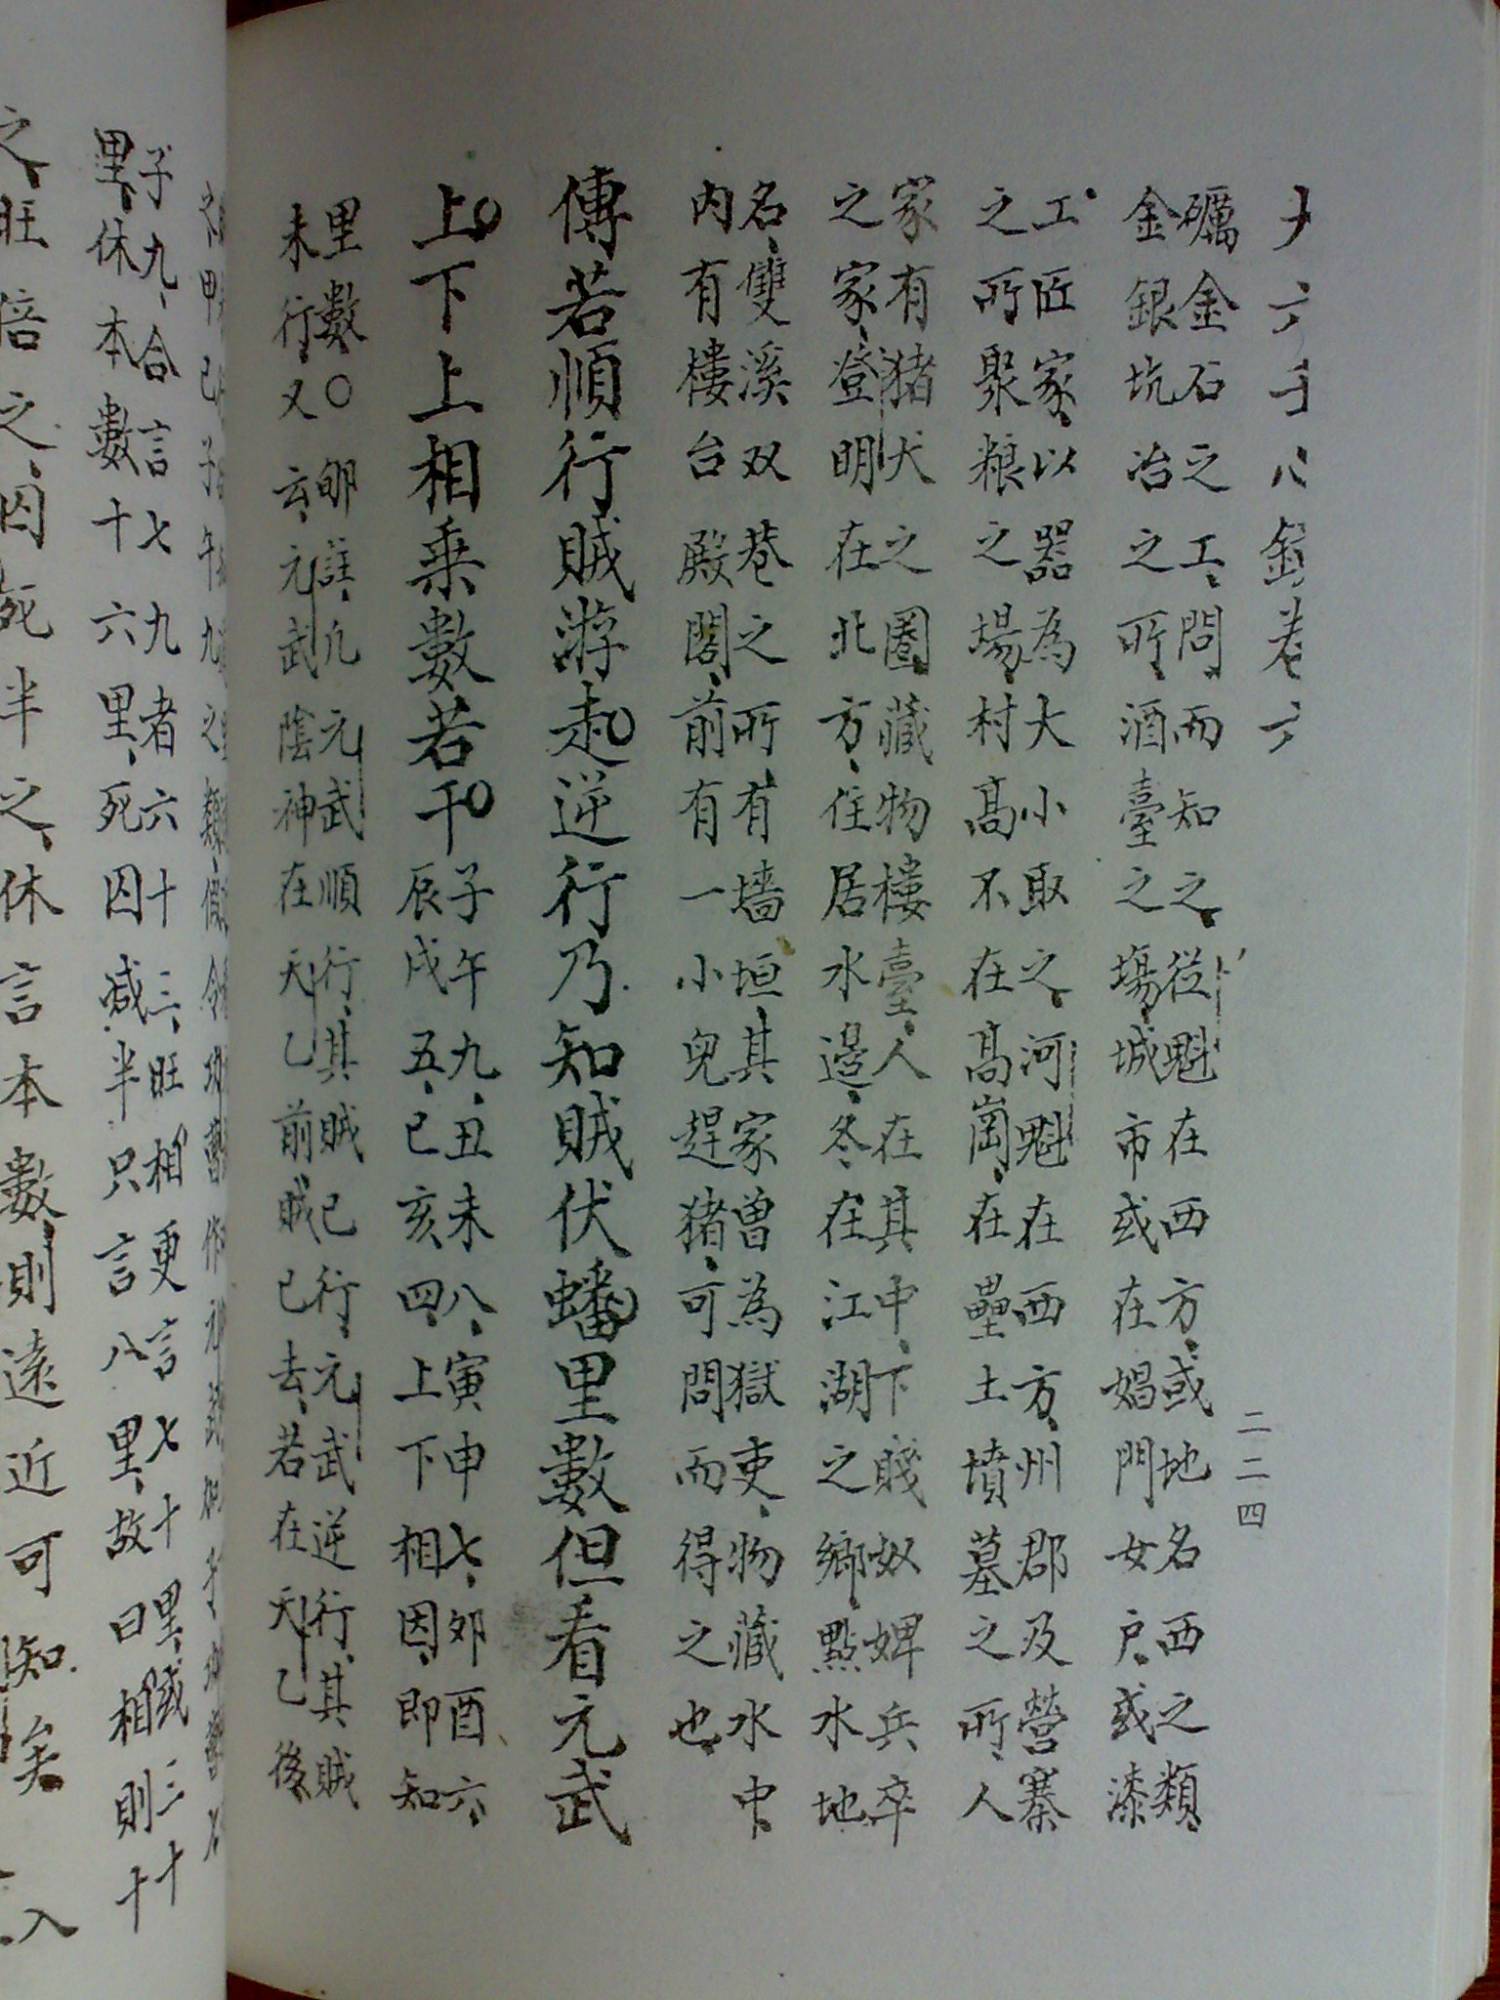 礪金石之工、問而知之、從魁在西方、或地名酉之類、
金銀坑冶之所、酒臺之場、城市或在娼門女户、或漆
工匠家、以器為大小取之、河魁在西方、州郡及營寨
之所聚粮之場、村髙不在髙崗、在壘土墳墓之所、人
家有猪犬之圈、藏物樓臺、人在其中、下賤奴婢兵卒
之家、登明在北方、住居水邉、冬在江湖之鄉、點水地
名、雙溪双巷之所、有墻垣、其家曽為獄吏、物藏水中、
内有樓台殿閣、前有一小兒趕猪、可問而得之也、
傳若順行賊游起逆行乃知賊伏蟠里數但看元武
上下上相乗數若干
子午九、丑未八、寅申七、夘酉六、
辰戌五、巳亥四、上下相因、即知
里數〇 卿註、凢元武順行、其賊已行、元武逆行、其賊
未行、又云、元武陰神在天乙前、賊已去、若在天乙後、
二二四
子九、合言七九者六十三、旺相更言七十里、或三十
里、休本數十六里、死囚减半只言八里、故曰相則十
之、旺倍之、囚死半之、休言本數、則遠近可知矣